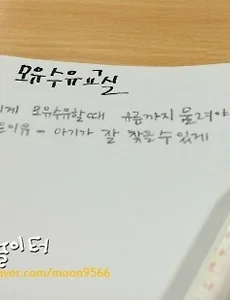 모유수유교실
게 모유수유할때 유륜까지 물려야
이유 - 아기가 잘 찾을 수 있게
놀이터
naver.com/moon9566